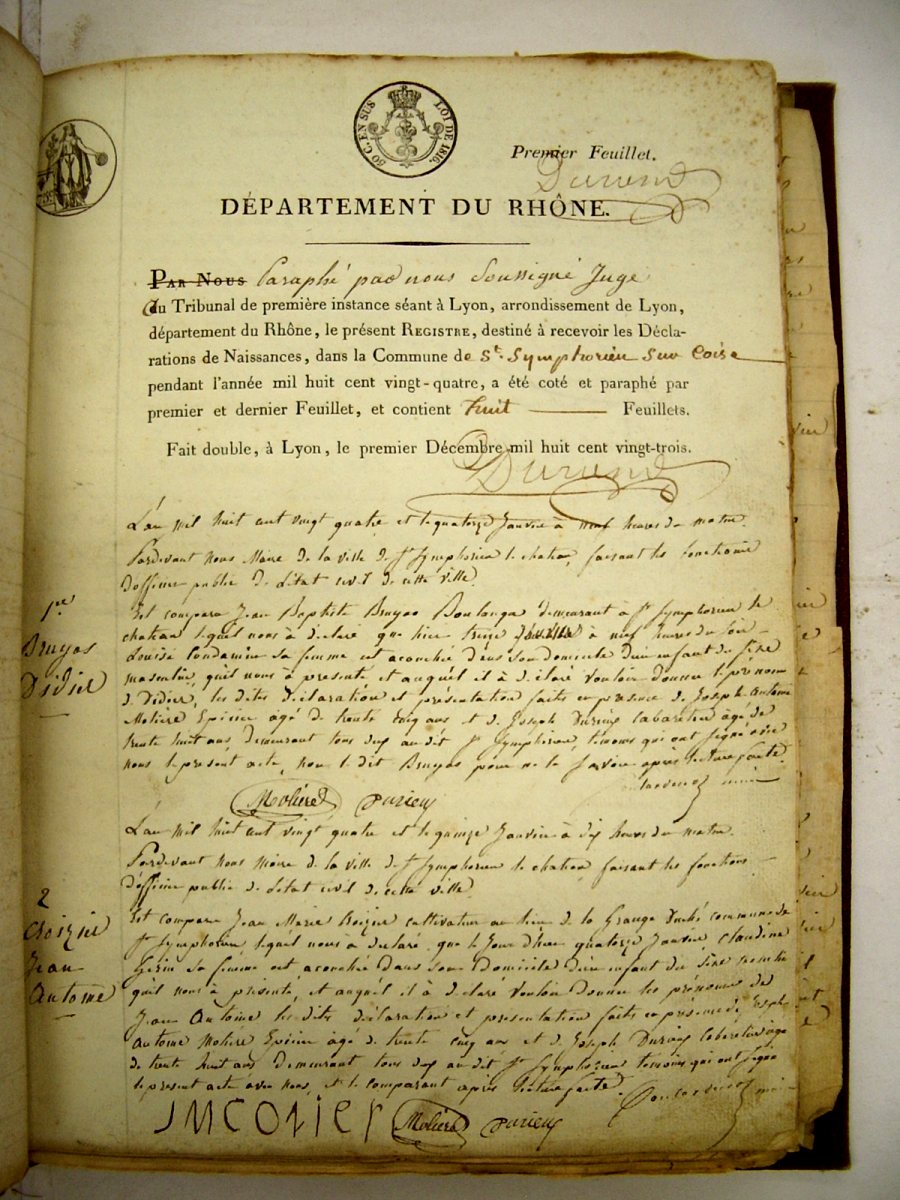 50 C. EN SUS LOI DE 1816.
Premier Feuillet.
Durand
DÉPARTEMENT DU RHÔNE.
PAR NOUS Paraphé par nous Soussigné Juge
du Tribunal de première instance séant à Lyon, arrondissement de Lyon,
département du Rhône, le présent REGISTRE, destiné à recevoir les Décla-
rations de Naissances, dans la Commune de St. Symphorien Sur Coise
pendant l'année mil huit cent vingt-quatre, a été coté et paraphé par
premier et dernier Feuillet, et contient huit Feuillets.
Fait double, à Lyon, le premier Décembre mil huit cent vingt-trois.
Durand
L'an mil huit cent vingt quatre et le quatorze Janvier à neuf heures du matin.
Pardevant nous Maire de la ville de St Symphorien le chateau, faisant les fonctions
D'officier public de l'état civil de cette ville.
1re
Bruyas
Didier
Est comparu Jean Baptiste Bruyas Boulanger demeurant à St Symphorien le
chateau lequel nous à déclaré que hier treize à neuf heures du soir
Louise Condamin sa femme est acouchée dans son domicile d'un enfant du sexe
masculin, qu'il nous à presenté et auquel il à déclaré vouloir donner le prénom
de Didier, les dites déclaration et présentation faites en presence de Joseph Antoine
Molière Epicier âgé de trente cinq ans et de Joseph Durieu Cabaretier âgé de
trente huit ans, demeurant tous deux au dit St Symphorien, temoins qui ont signé avec
nous le present acte, non le dit Bruyas pour ne le savoir après lecture faite.
Moliere Durieu
L'an mil huit cent vingt quatre et le quinze Janvier à dix heures du matin.
Pardevant nous Maire de la ville de St Symphorien le chateau faisant les fonctions
d'officier public de l'état civil de cette ville
2
Croizier
Jean
Antoine
Est comparu Jean Marie Croizier cultivateur au lieu de la Grange commune de
St Symphorien lequel nous à declaré que le jour d'hier quatorze Janvier Claudine
sa femme est acouchée dans son domicile d'un enfant du sexe
qu'il nous à presenté, et auquel il à déclaré vouloir donner les prénoms de
Jean Antoine les dites déclaration et presentation faites en présence de Joseph
Antoine Moliere Epicier âgé de trente cinq ans et de Joseph Durieu Cabaretier âgé
de trente huit ans demeurant tous deux au dit St Symphorien temoins qui ont signé
le present acte avec nous, et le comparant après lecture faite.
Moliere Durieu